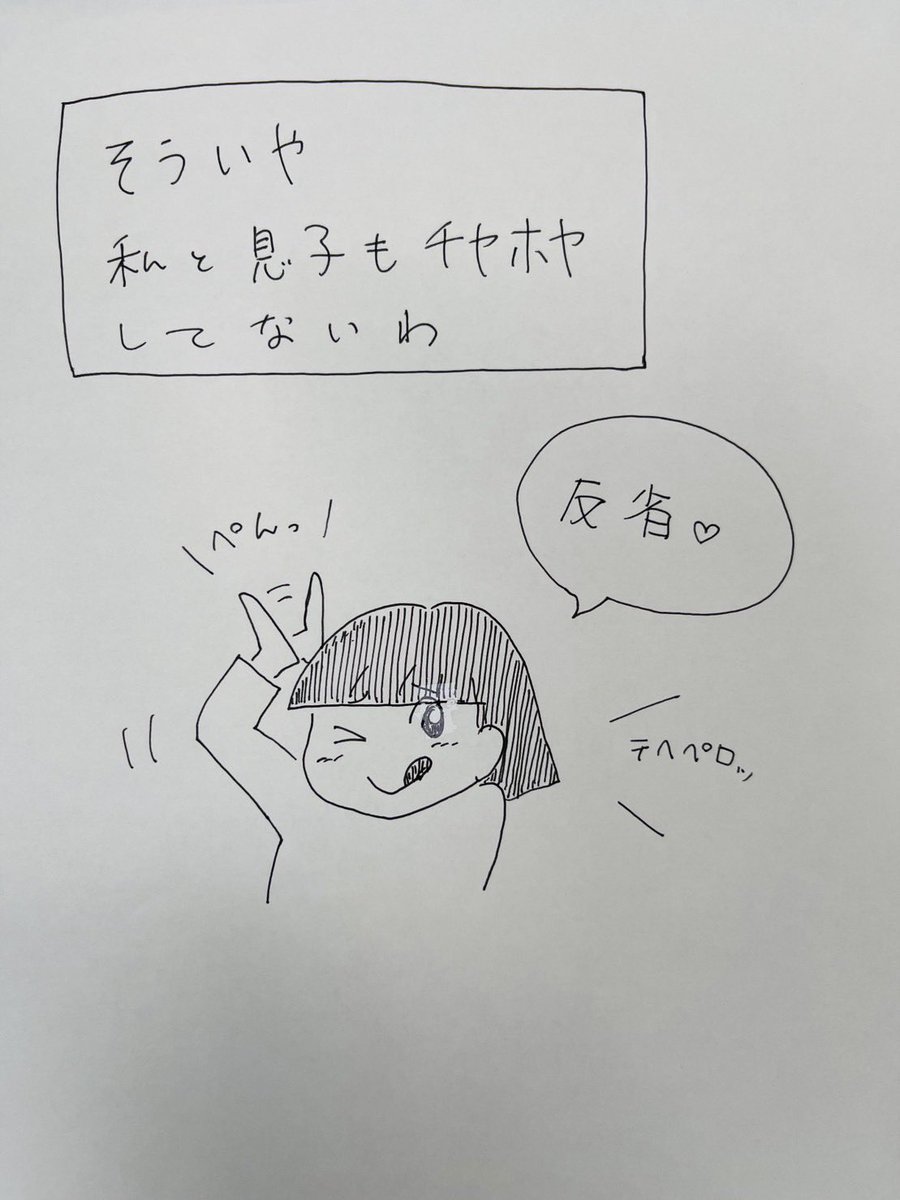 そういや
私と息子もチヤホヤ
してないわ
反省♡
ぺんっ
テヘペロッ